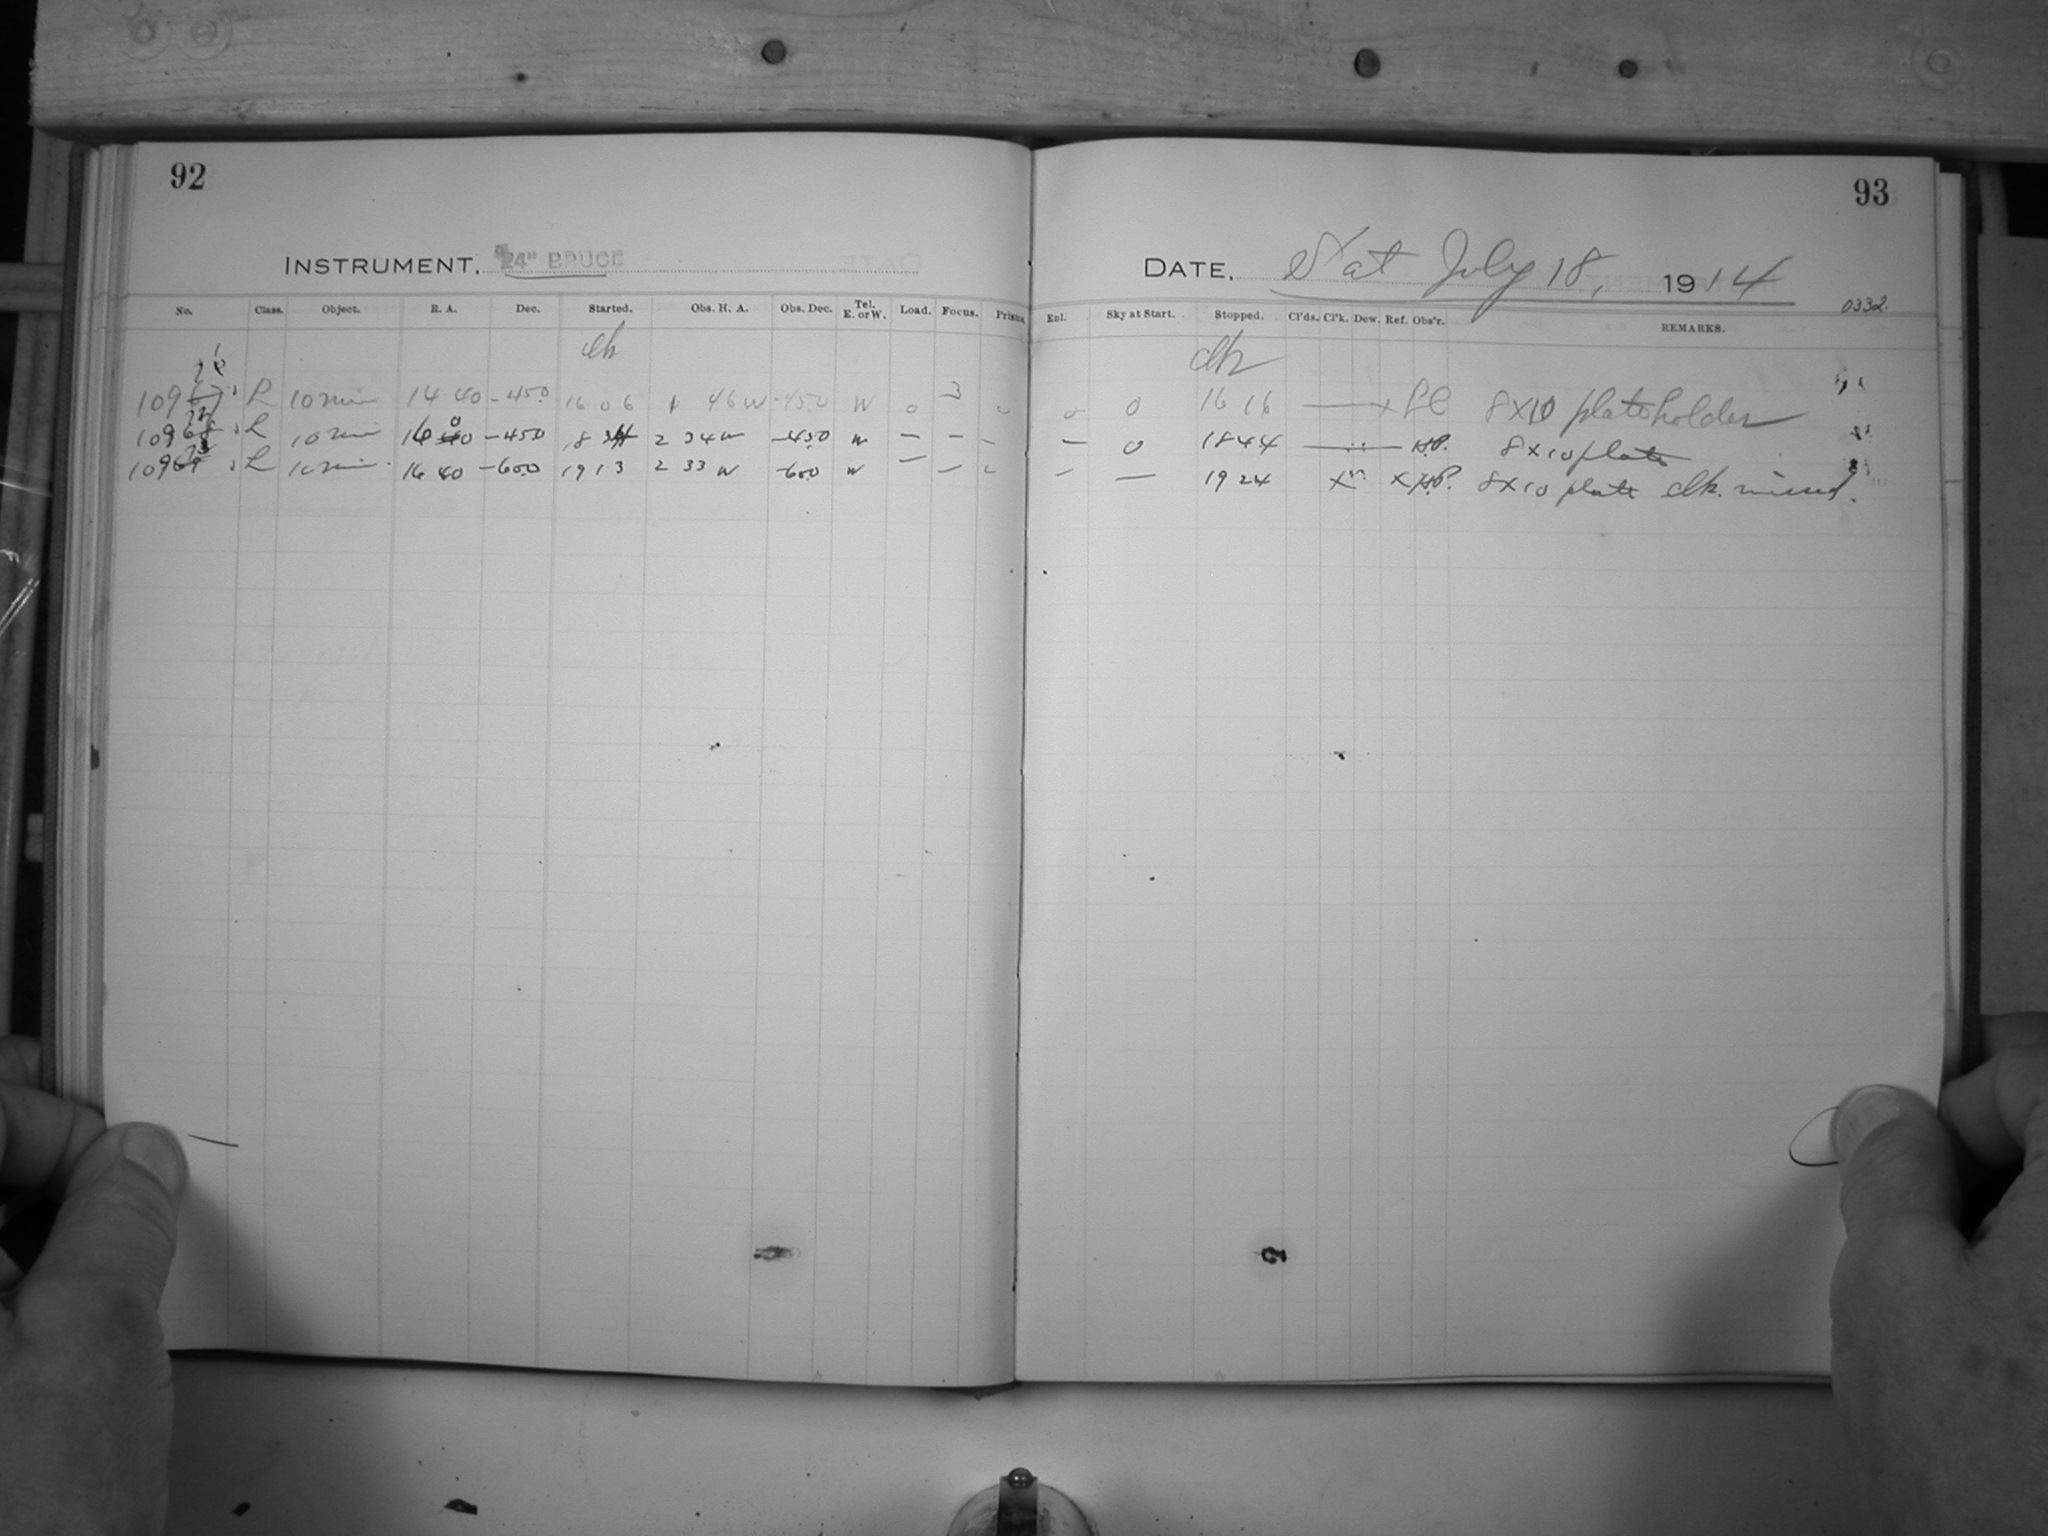 92
93
INSTRUMENT, 24" BRUCE
DATE, Sat July 18, 1914
No. Class. Object. R. A. Dec. Started. Obs. H. A. Obs. Dec. Tel. E. or W. Load. Focus. Prisms. Enl. Sky at Start. Stopped. Cl'ds. Cl'k. Dew. Ref. Obs'r. REMARKS. 0332.
clk clk
L 10 min 14 40 -45.0 16 06 1 46 W -45.0 W 0 3 0 0 16 16 8X10 plateholder
L 10 min 16 0 -45.0 18 34 2 34 W -45.0 W — — — 0 18 44 8X10 plate
L 10 min. 16 40 -60.0 19 13 2 33 W -60.0 W — — — — 19 24 8X10 plate clk. missed.